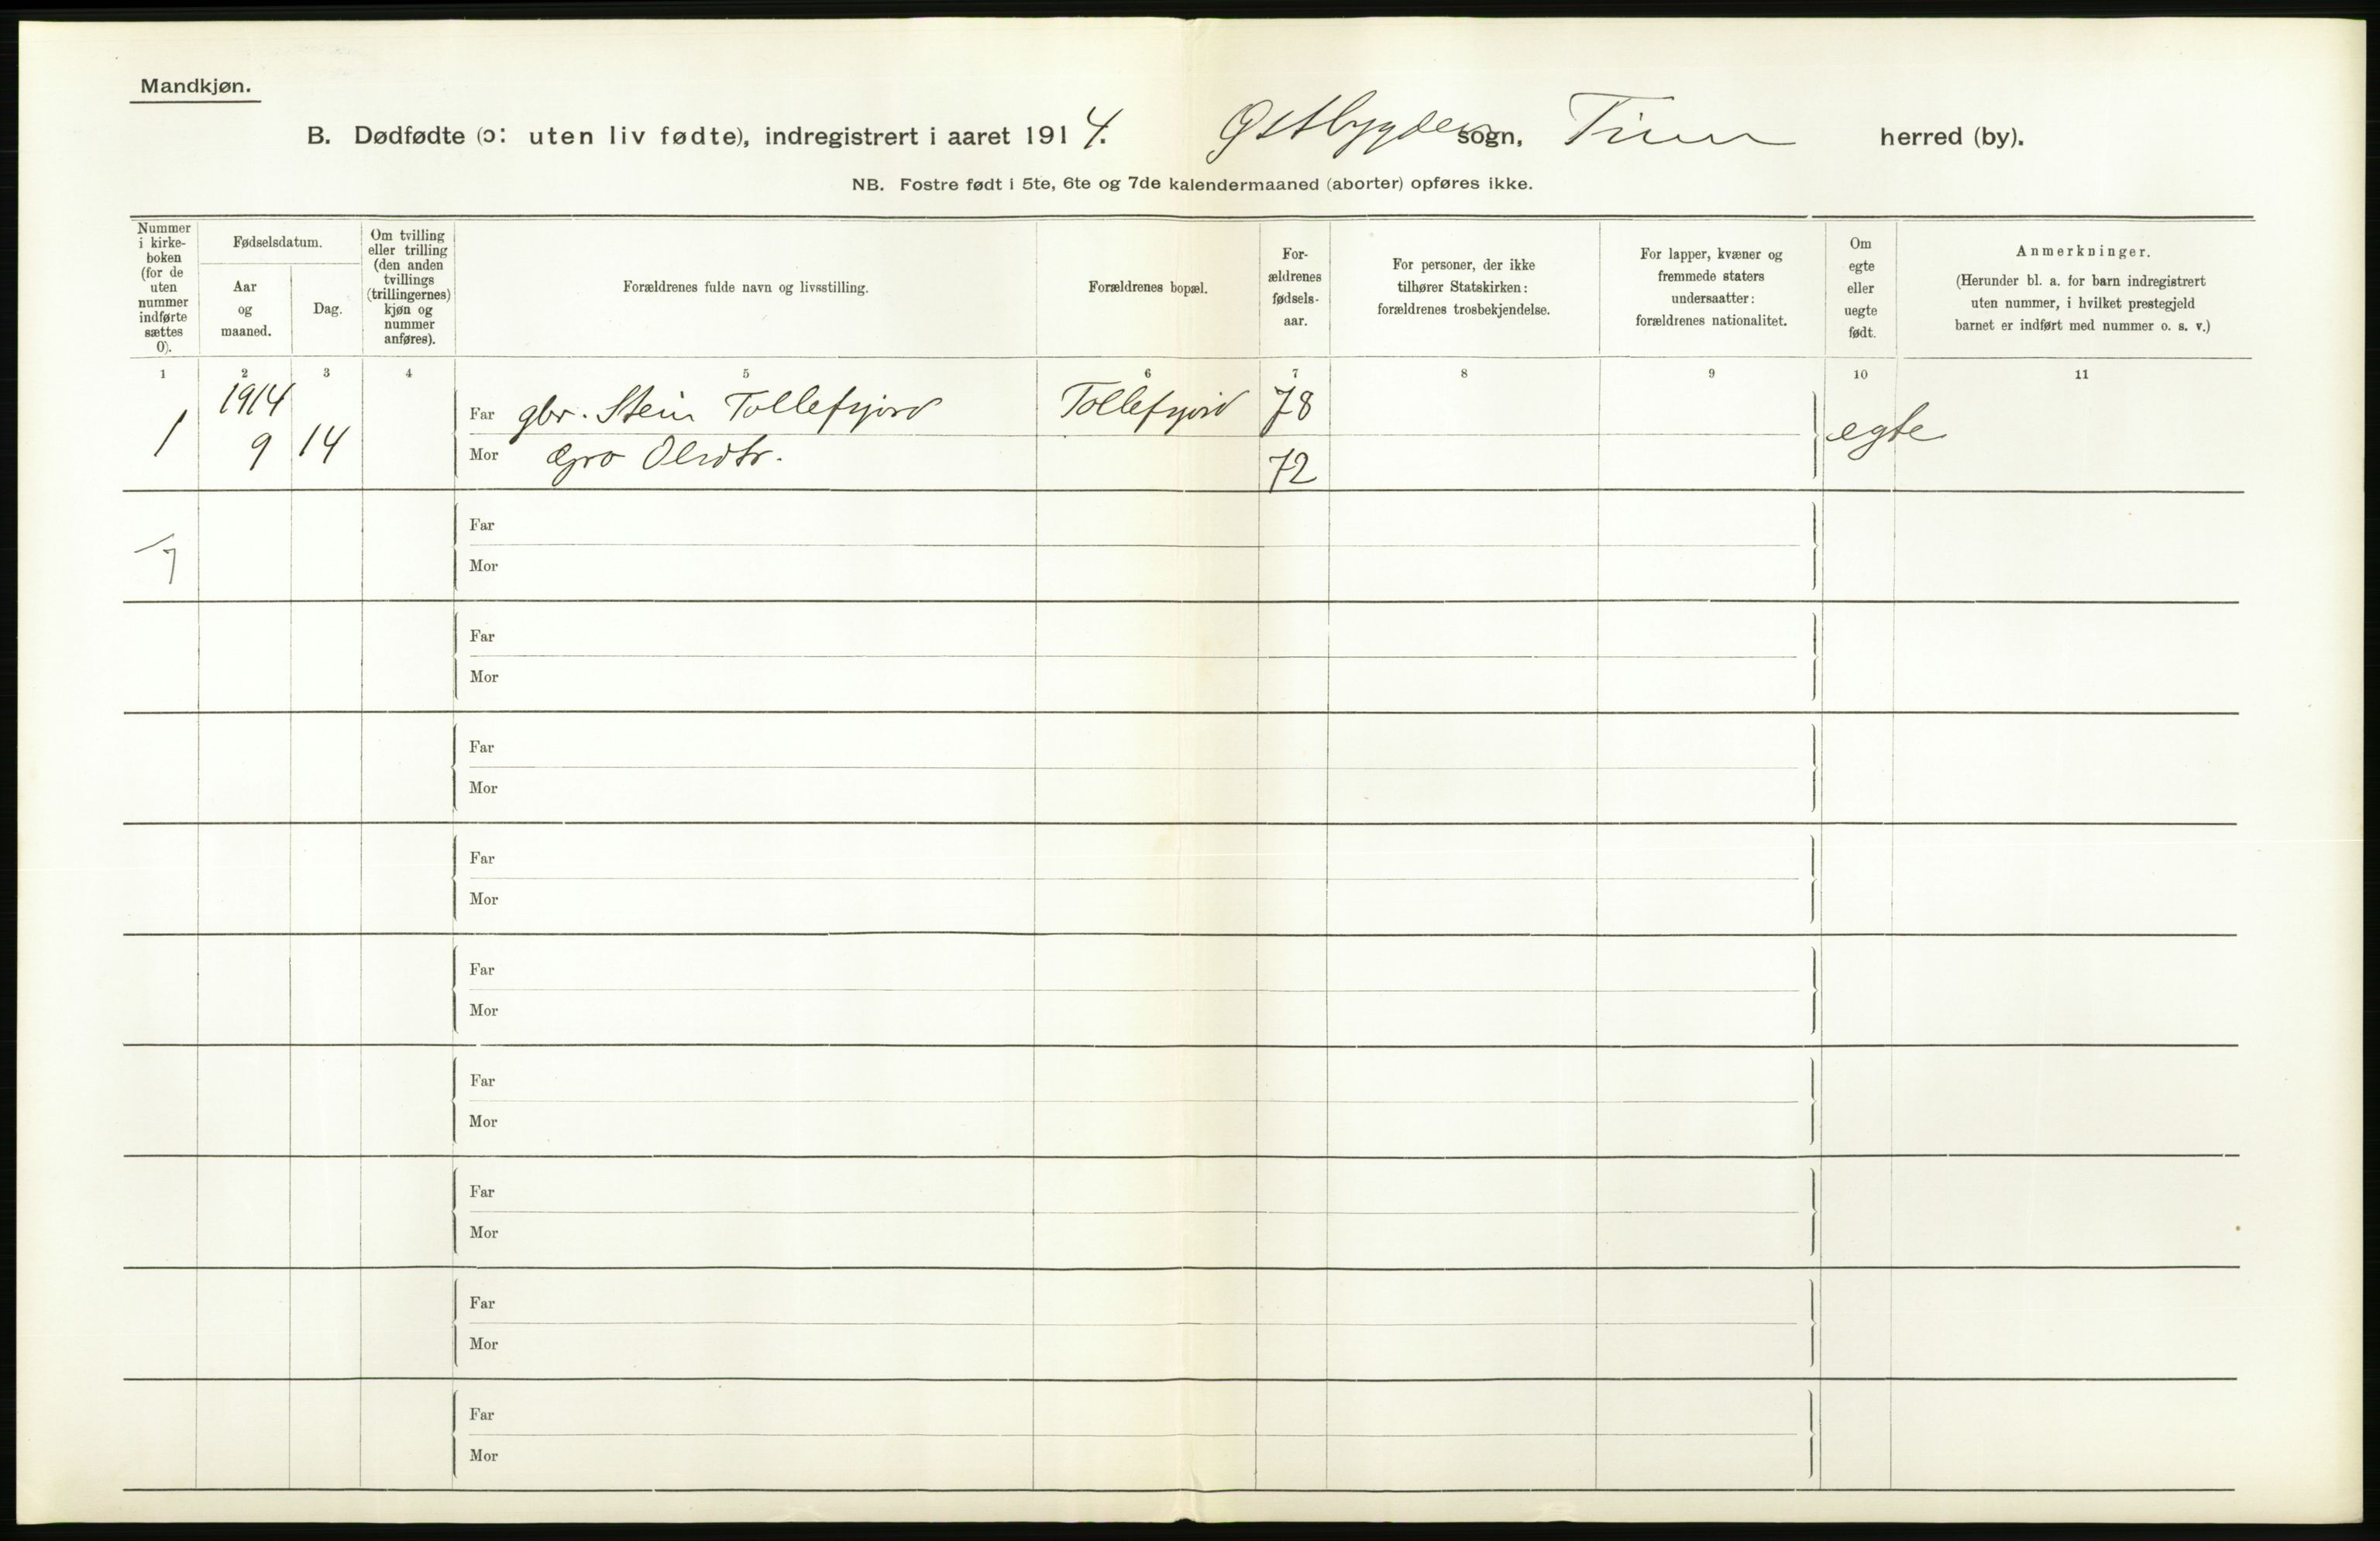 Mandkjøn.
B. Dødfødte (ɔ: uten liv fødte), indregistrert i aaret 1914. Østbygden sogn, Tinn herred (by).
NB. Fostre født i 5te, 6te og 7de kalendermaaned (aborter) opføres ikke.
Nummer
i kirke-
boken
(for de
uten
nummer
indførte
sættes
0).
Fødselsdatum.
Aar
og
maaned.
Dag.
Om tvilling
eller trilling
(den anden
tvillings
(trillingernes)
kjøn og
nummer
anføres).
Forældrenes fulde navn og livsstilling.
Forældrenes bopæl.
For-
ældrenes
fødsels-
aar.
For personer, der ikke
tilhører Statskirken:
forældrenes trosbekjendelse.
For lapper, kvæner og
fremmede staters
undersaatter:
forældrenes nationalitet.
Om
egte
eller
uegte
født.
Anmerkninger.
(Herunder bl. a. for barn indregistrert
uten nummer, i hvilket prestegjeld
barnet er indført med nummer o. s. v.)
1 2 3 4 5 6 7 8 9 10 11
1914
Far gbr. Stein Tollefsjord Tollefsjord 78
1 9 14 egte
Mor Gro Olsdtr. 72
Far
Mor
Far
Mor
Far
Mor
Far
Mor
Far
Mor
Far
Mor
Far
Mor
Far
Mor
Far
Mor